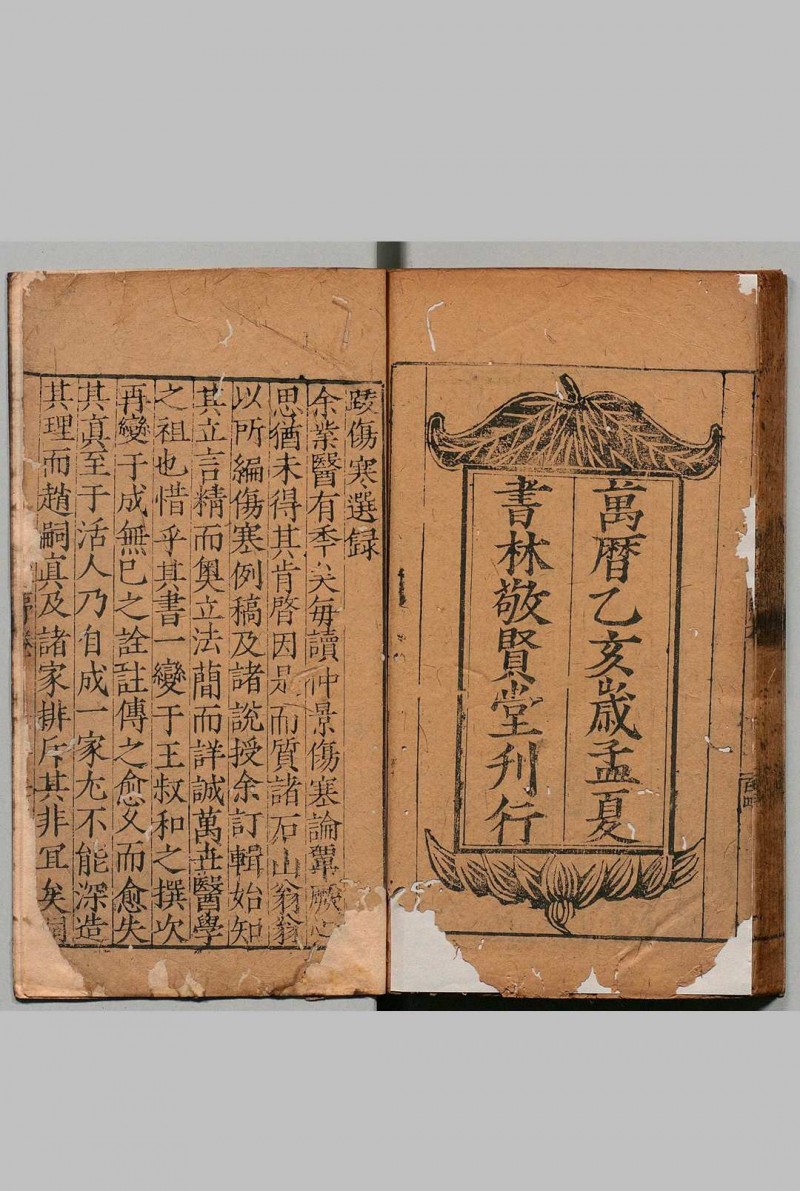 萬曆乙亥歲孟夏
書林敬賢堂刊行
跋傷寒選録
余業醫有季矣每讀仲景傷寒論覃厥心
思猶未得其肯啓因是而質諸石山翁翁
以所編傷寒例稿及諸説授余訂輯始知
其立言精而奥立法蕳而詳誠萬丗醫學
之祖也惜乎其書一變于王叔和之撰次
再變于成無巳之詮註傳之愈乆而愈失
其真至于活人乃自成一家尢不能深造
其理而趙嗣真及諸家排斥其非冝矣